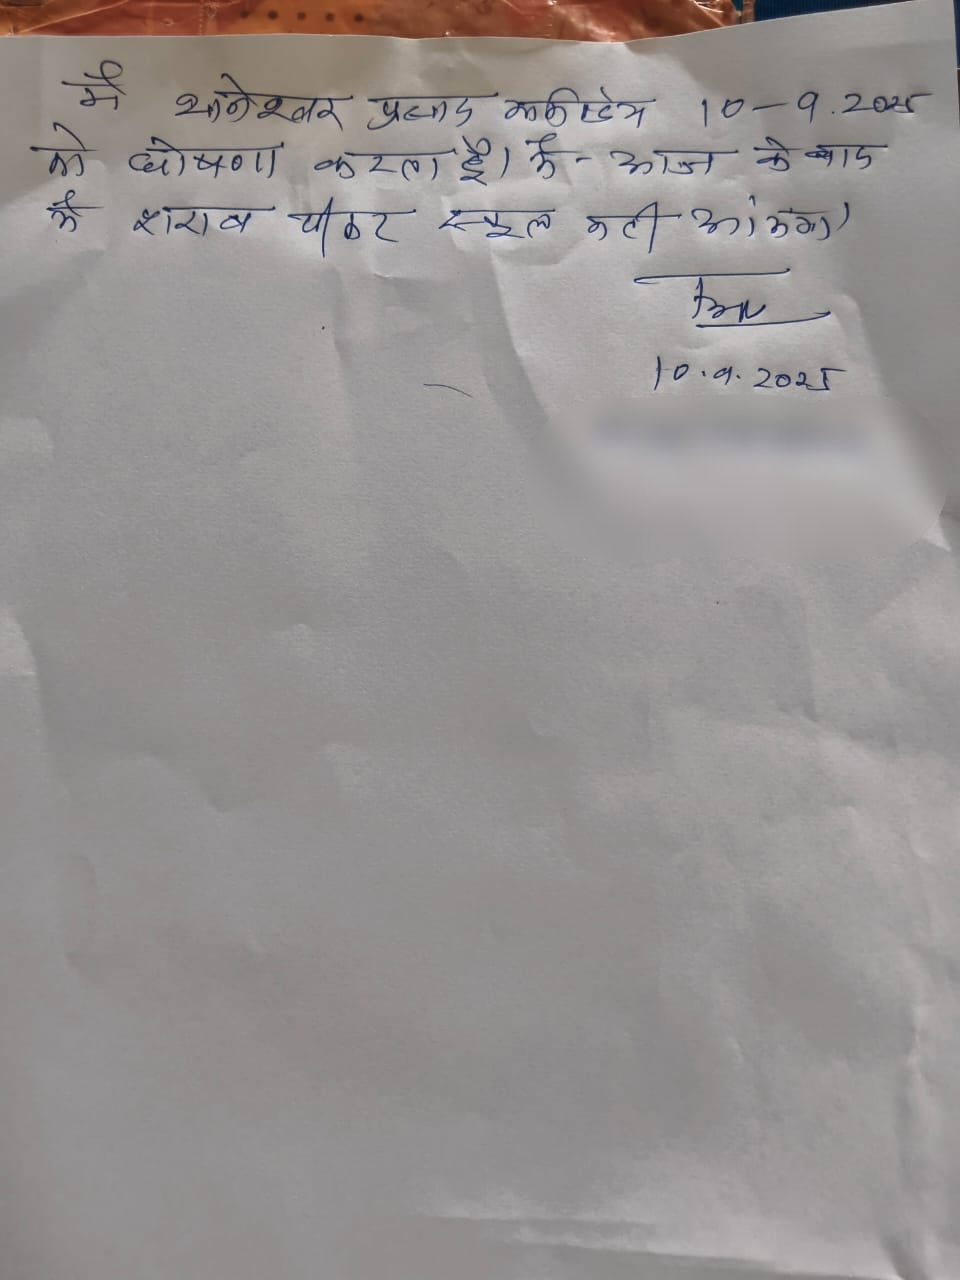 मैं थानेश्वर प्रसाद 10-9.2025
को घोषणा करता हूँ। मैं- आज के बाद
मैं शराब पीकर स्कूल नही आऊंगा।
10.9.2025